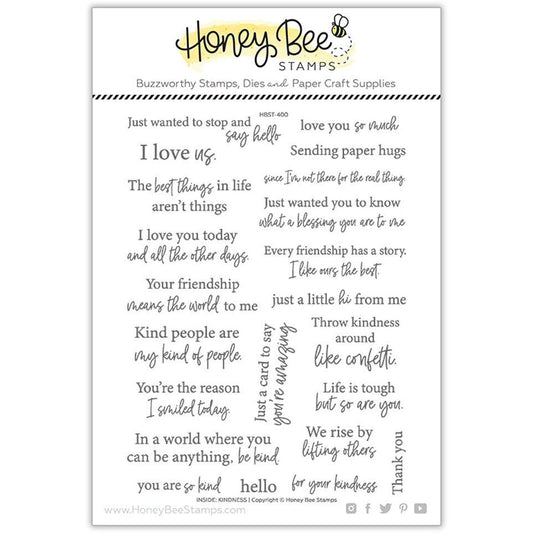 Honey Bee
STAMPS
Buzzworthy Stamps, Dies and Paper Craft Supplies
HBST-400
Just wanted to stop and
say hello
love you so much
I love us.
Sending paper hugs
since I'm not there for the real thing.
The best things in life
aren't things
Just wanted you to know
what a blessing you are to me
I love you today
and all the other days.
Every friendship has a story.
I like ours the best.
Your friendship
means the world to me
just a little hi from me
Kind people are
my kind of people.
Just a card to say
you're amazing
Throw kindness
around
like confetti.
You're the reason
I smiled today.
Life is tough
but so are you.
In a world where you
can be anything, be kind
We rise by
lifting others
Thank you
you are so kind
hello
for your kindness
INSIDE: KINDNESS | Copyright © Honey Bee Stamps
www.HoneyBeeStamps.com